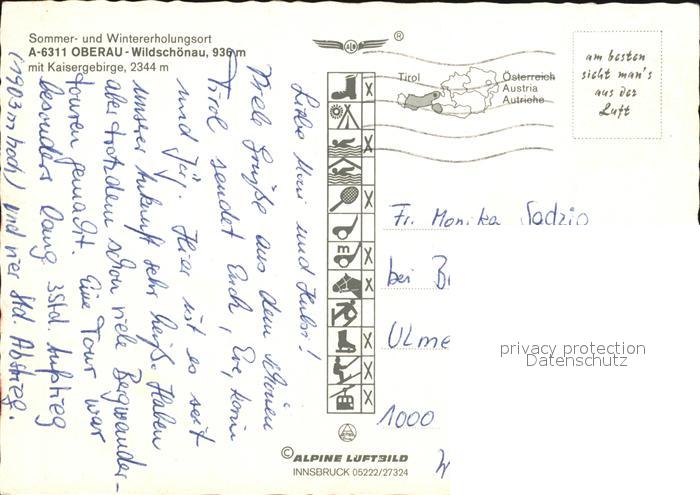 Sommer- und Wintererholungsort
A-6311 OBERAU - Wildschönau, 936 m
mit Kaisergebirge, 2344 m
Liebe Moni und Hubsi!
Viele Grüße aus dem schönen
Tirol sendet Euch, Eve, Karin
und Jürg. Hier ist es seit
unserer Ankunft sehr heiß. Haben
aber trotzdem schon viele Bergwander-
touren gemacht. Eine Tour war
besonders lang 3 Std. Aufstieg
(1903 m hoch) und vier Std. Abstieg.
®
Tirol
Österreich
Austria
Autriche
am besten
sieht man's
aus der
Luft
Fr. Monika Sadzio
bei
Ulme
1000
privacy protection
Datenschutz
© ALPINE LUFTBILD
INNSBRUCK 05222/27324